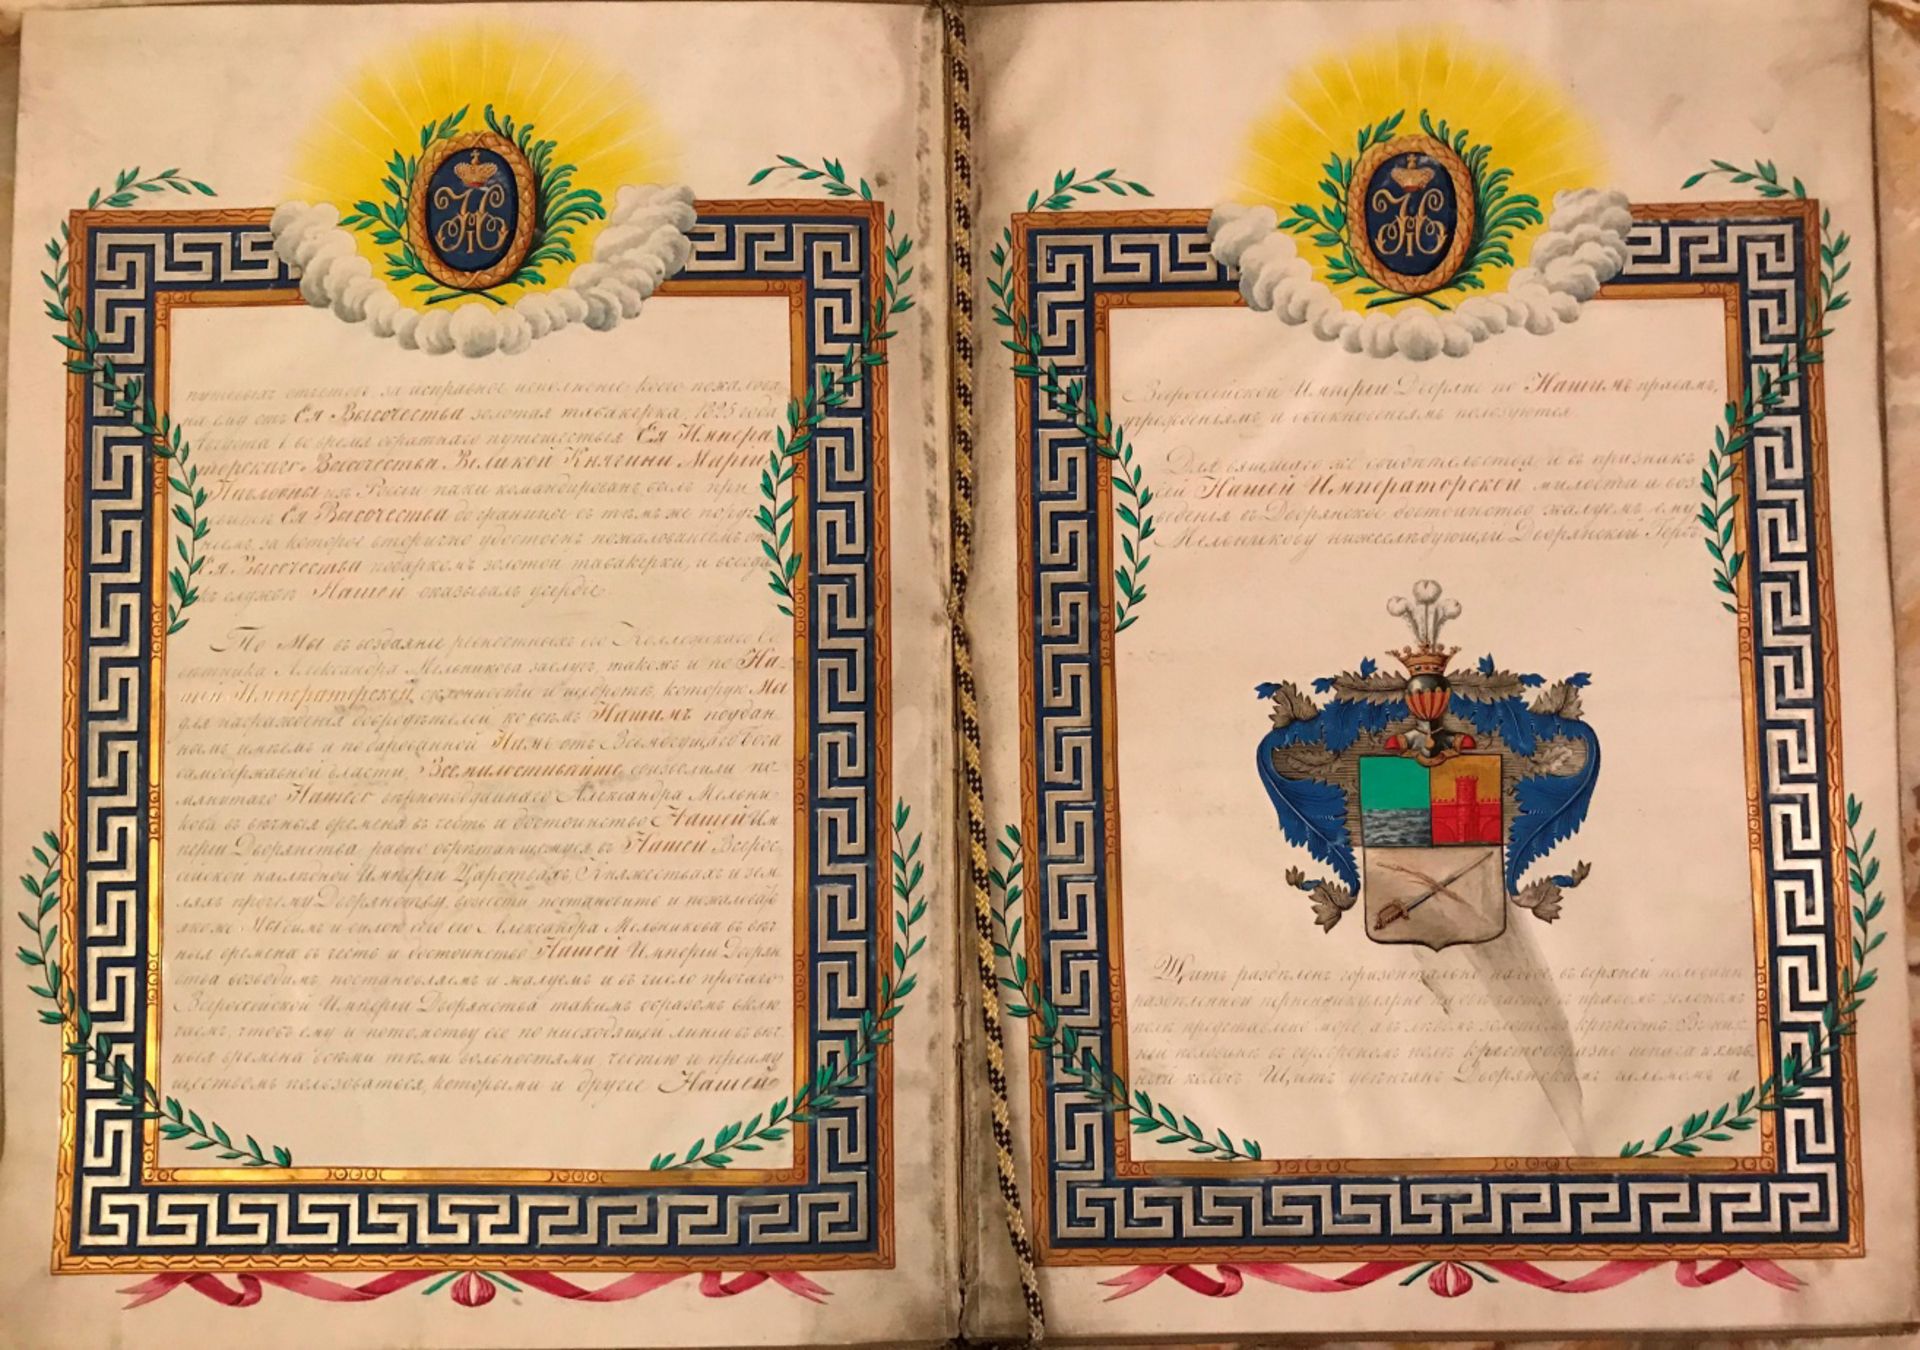 путевыхъ отчетовъ, за исправное исполненіе коего пожалова
на ему отъ Ея Высочества золотая табакерка, 1825 года
Августа 1 во время обратнаго путешествія Ея Импера
торскаго Высочества Великой Княгини Маріи
Павловны изъ Россіи паки командированъ былъ при
свитѣ Ея Высочества до границы съ тѣмъ же поруч
ніемъ, за которое вторично удостоенъ пожалованіемъ отъ
Ея Высочества подаркомъ золотой табакерки, и всегда
къ службѣ Нашей оказывалъ усердіе.
То Мы въ воздаяніе ревностныхъ его Коллежскаго Со
вѣтника Александра Мельникова заслугъ, такожъ и по На-
шей Императорской склонности и щедротѣ, которую Мы
для награжденія добродѣтелей ко всѣмъ Нашимъ поддан
нымъ имѣемъ и по дарованной Намъ отъ Всемогущаго Бога
самодержавной власти, Всемилостивѣйше соизволили по
мянутаго Нашего вѣрноподданнаго Александра Мельни
кова въ вѣчныя времена въ честь и достоинство Нашей Им
періи Дворянства равно обрѣтающемуся въ Нашей Всерос
сійской наслѣдной Имперіи Царствахъ, Княжествахъ и зем
ляхъ прочему Дворянству, возвести постановить и пожаловать
якоже Мы симъ и силою сего его Александра Мельникова въ вѣч
ныя времена въ честь и достоинство Нашей Имперіи Дворян
ства возводимъ, постановляемъ и жалуемъ и въ число прочаго
Всероссійской Имперіи Дворянства такимъ образомъ вклю
чаемъ, чтобъ ему и потомству его по нисходящей линіи въ вѣч
ныя времена всѣми тѣми вольностями, честію и преиму
ществомъ пользоваться, которыми и другіе Нашей
Всероссійской Имперіи Дворяне по Нашимъ правамъ,
учрежденіямъ и обыкновеніямъ пользуются.
Для вящшаго же свидѣтельства, и въ признакъ
сей Нашей Императорской милости и воз
веденія въ Дворянское достоинство жалуемъ ему
Мельникову нижеслѣдующій Дворянской Гербъ.
Щитъ раздѣленъ горизонтально на двое, въ верхней половинѣ
раздѣленной перпендикулярно на двѣ части въ правомъ зеленомъ
полѣ представлено море, а въ лѣвомъ золотомъ крѣпость. Въ ниж
ней половинѣ въ серебреномъ полѣ крестообразно шпага и
колосъ. Щитъ увѣнчанъ Дворянскимъ шлемомъ и